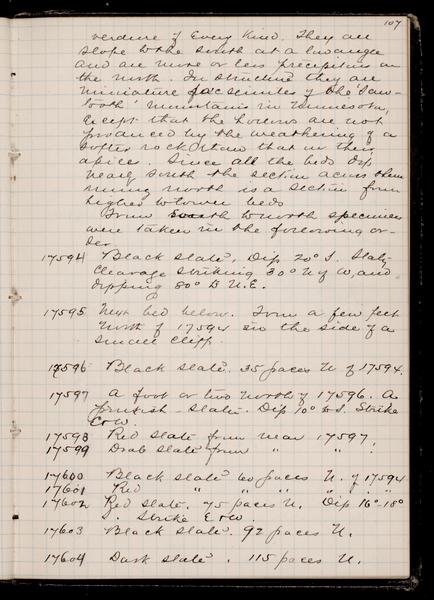 107
verdure of Every Kind. They all
slope to the south at a low angle
and are more or less precipitous on
the north. In structure they are
miniature facsimiles of the "Saw-
tooth" mountains in Minnesota,
except that the hollows are not
produced by the weathering of a
softer rock than that in their
apices. Since all the beds dip
nearly south the section across them
running north is a section from
higher to lower beds
From South to north specimens
were taken in the following or-
der.
17594 Black slate. Dip 20° S. Slaty
cleavage striking 30° N of W, and
dipping 80° to N.E.
17595 Next bed below. From a few feet
north of 17594 in the side of a
small cliff.
17596 Black slate. 35 paces N. of 17594.
17597 A foot or two north of 17596. A
slate. Dip 10° to S. Strike
E & W.
17598 Red slate from near 17597.
17599 Drab slate from " " .
17600 Black slate 60 paces N. of 17594
17601 Red " " " " "
17602 Red slate. 75 paces N. Dip 16°-18°
S. Strike E & W.
17603 Black slate. 92 paces N.
17604 Dark slate. 115 paces N.